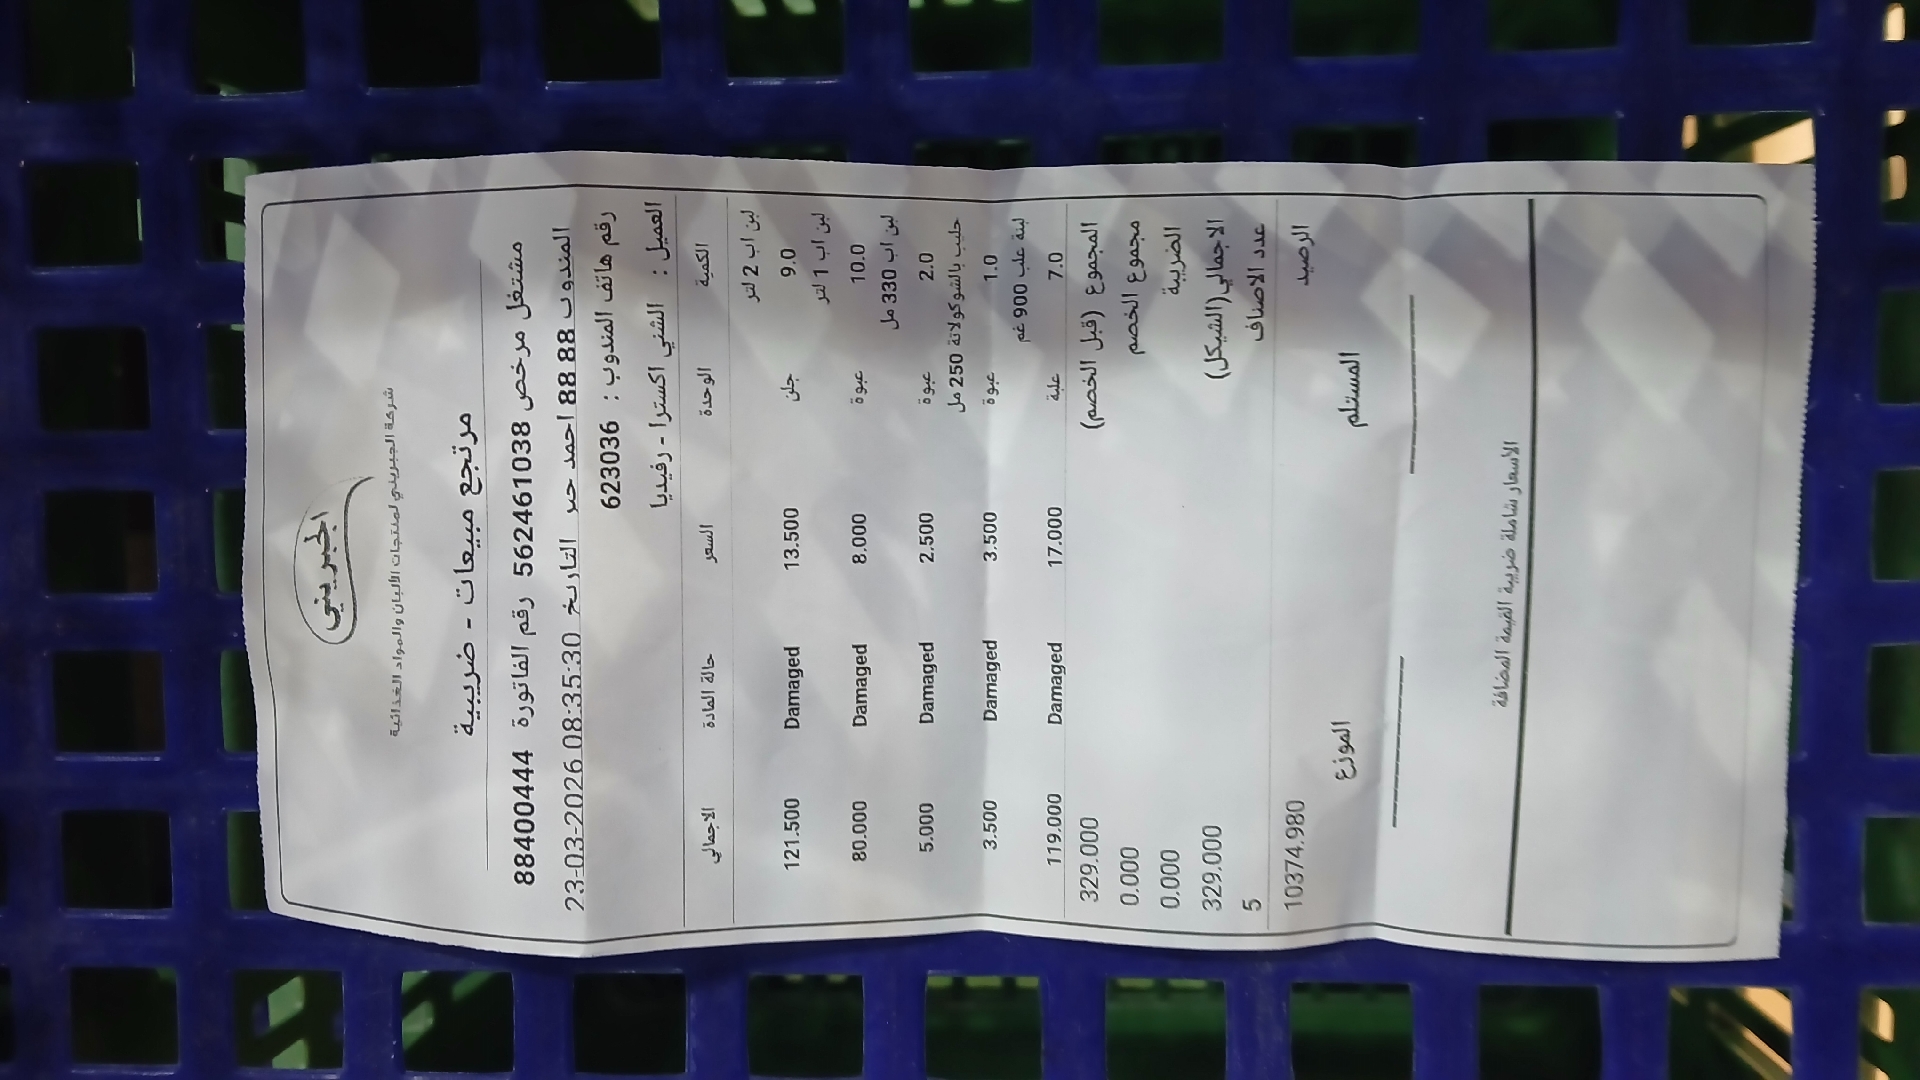 الجبريني
شركة الجبريني لمنتجات الالبان والمواد الغذائية
مرتجع مبيعات - ضريبية
مشتغل مرخص 562461038 رقم الفاتورة 88400444
المندوب 88 88 احمد حبر التاريخ 23-03-2026 08:35:30
رقم هاتف المندوب : 623036
العميل : الشني اكسترا - رفيديا
الكمية الوحدة السعر حالة المادة الاجمالي
لبن اب 2 لتر
9.0 جلن 13.500 Damaged 121.500
لبن اب 1 لتر
10.0 عبوة 8.000 Damaged 80.000
لبن اب 330 مل
2.0 عبوة 2.500 Damaged 5.000
حليب بالشوكولاتة 250 مل
1.0 عبوة 3.500 Damaged 3.500
لبنة علب 900 غم
7.0 علبة 17.000 Damaged 119.000
المجموع (قبل الخصم) 329.000
مجموع الخصم 0.000
الضريبة 0.000
الاجمالي(الشيكل) 329.000
عدد الاصناف 5
الرصيد 10374.980
المستلم الموزع
الأسعار شاملة ضريبة القيمة المضافة